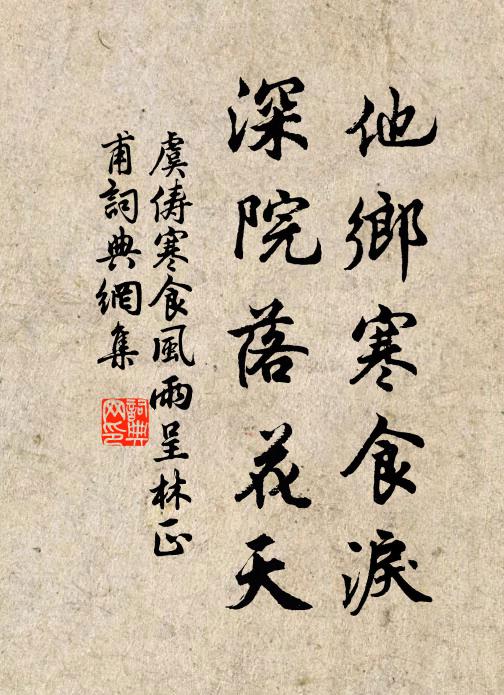 他鄉寒食淚
深院落花天
虞儔寒食風雨呈林正
甫詞典網集
詞典网印